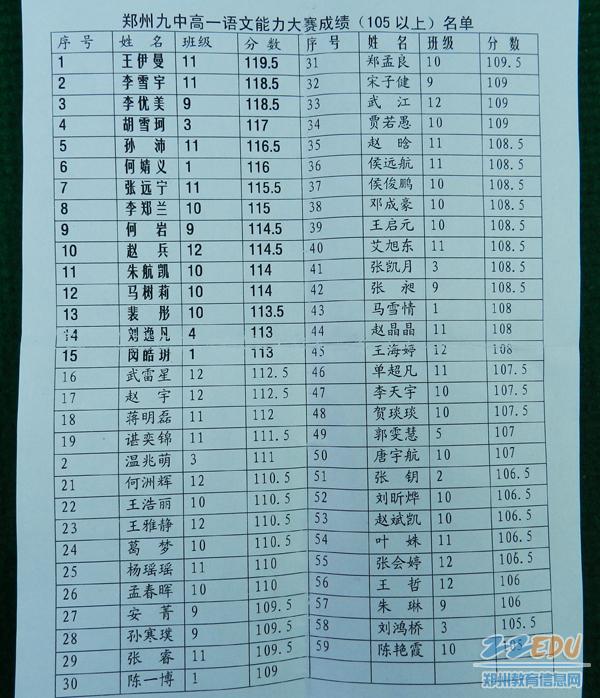 郑州九中高一语文能力大赛成绩（105以上）名单
序号 姓名 班级 分数 序号 姓名 班级 分数
1 王伊曼 11 119.5 31 郑孟良 10 109.5
2 李雪宇 11 118.5 32 宋子健 9 109
3 李优美 9 118.5 33 武江 12 109
4 胡雪珂 3 117 34 贾若愚 10 109
5 孙沛 11 116.5 35 赵晗 11 108.5
6 何婧义 1 116 36 侯远航 11 108.5
7 张远宁 11 115.5 37 侯俊鹏 10 108.5
8 李郑兰 10 115 38 邓成豪 10 108.5
9 何岩 9 114.5 39 王启元 10 108.5
10 赵兵 12 114.5 40 艾旭东 11 108.5
11 朱航凯 10 114 41 张凯月 3 108.5
12 马树莉 10 114 42 张昶 9 108.5
13 裴彤 10 113.5 43 马雪情 1 108
14 刘逸凡 4 113 44 赵晶晶 11 108
15 闵皓玥 1 113 45 王海婷 12 108
16 武雷星 12 112.5 46 单超凡 11 107.5
17 赵宇 12 112.5 47 李天宇 10 107.5
18 蒋明磊 11 112 48 贺琰琰 10 107.5
19 谌奕锦 11 111.5 49 郭雯慧 5 107
2 温兆萌 3 111 50 唐宇航 10 107
21 何洲辉 12 110.5 51 张钥 2 106.5
22 王浩丽 10 110.5 52 刘昕烨 10 106.5
23 王雅静 12 110.5 53 赵斌凯 10 106.5
24 葛梦 10 110.5 54 叶姝 11 106.5
25 杨瑶瑶 11 110 55 张会婷 12 106.5
26 孟春晖 10 110 56 王哲 12 106
27 安菁 9 109.5 57 朱琳 9 106
28 孙寒璞 9 109.5 58 刘鸿桥 3 105.5
29 张睿 11 109.5 59 陈艳霞 10 105
30 陈一博 1 109
ZZEDU
郑州教育信息网